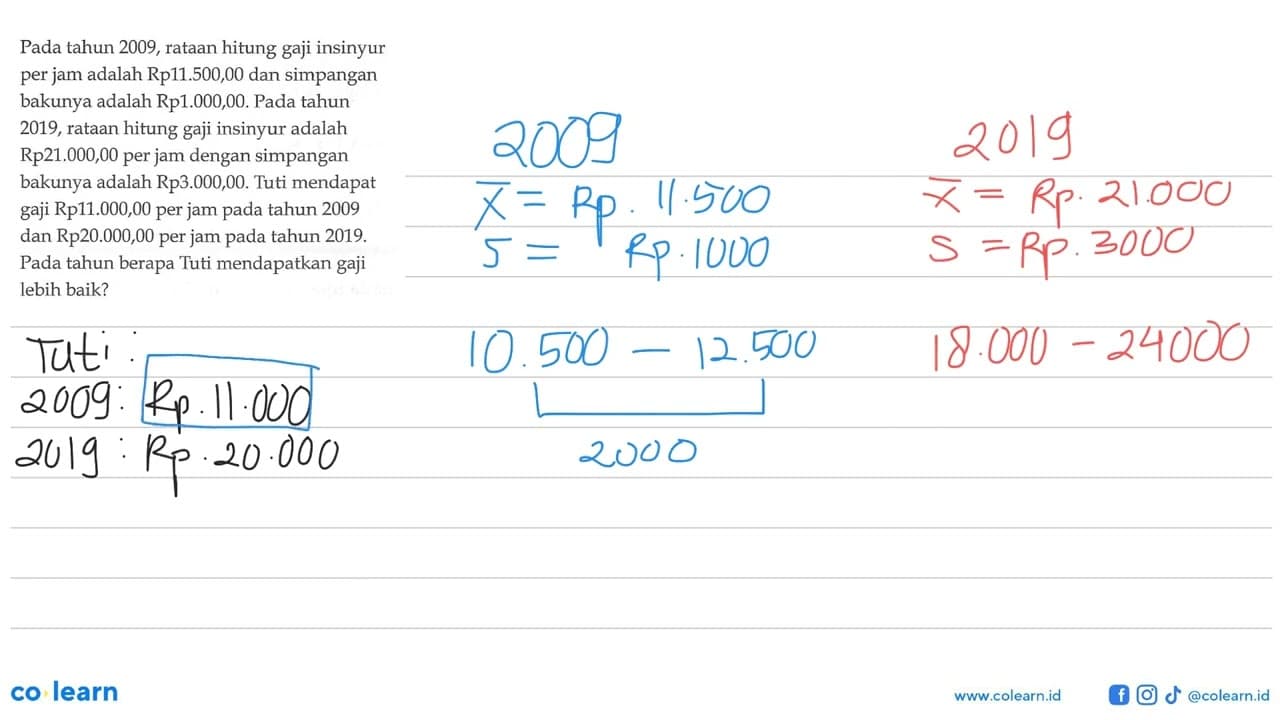 Pada tahun 2009, rataan hitung gaji insinyur
per jam adalah Rp11.500,00 dan simpangan
bakunya adalah Rp1.000,00. Pada tahun
2019, rataan hitung gaji insinyur adalah
Rp21.000,00 per jam dengan simpangan
bakunya adalah Rp3.000,00. Tuti mendapat
gaji Rp11.000,00 per jam pada tahun 2009
dan Rp20.000,00 per jam pada tahun 2019.
Pada tahun berapa Tuti mendapatkan gaji
lebih baik?
Tuti :
2009 : Rp. 11.000
2019 : Rp. 20.000
2009
x̅ = Rp. 11.500
S = Rp. 1000
10.500 – 12.500
2000
2019
x̅ = Rp. 21.000
S = Rp. 3000
18.000 – 24000
co learn
www.colearn.id
@colearn.id